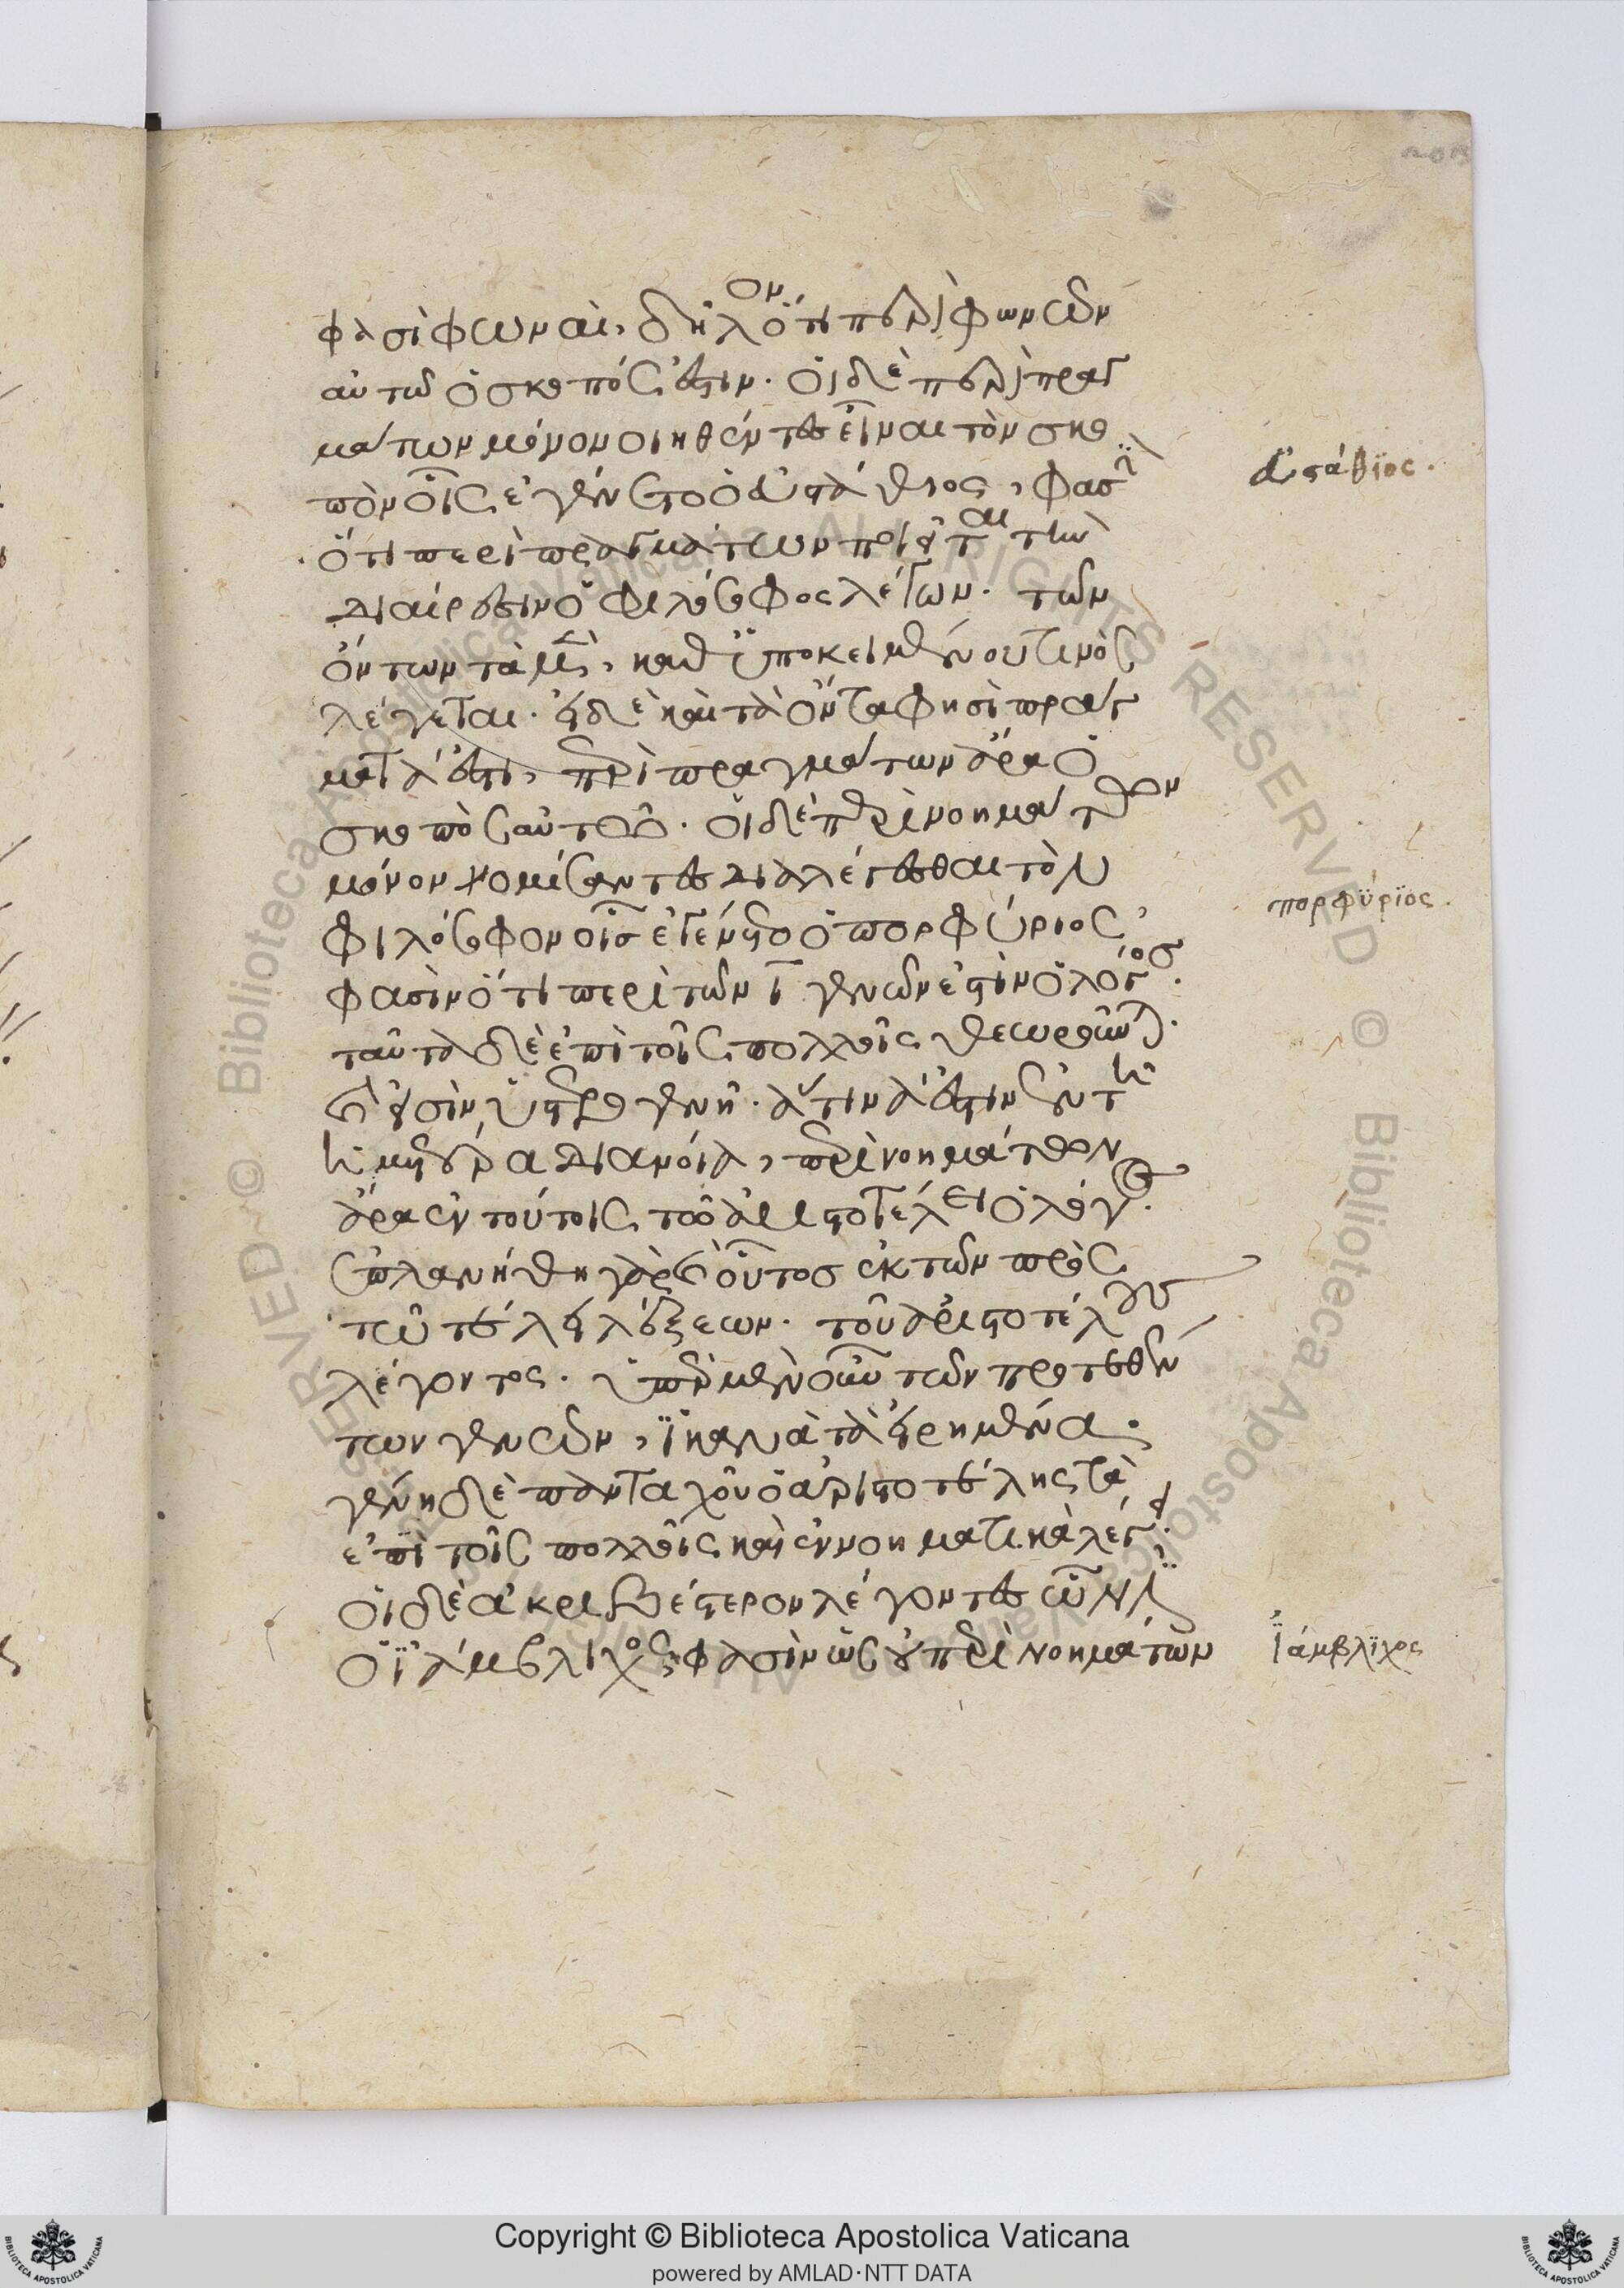 φασὶ φωναὶ, δῆλον ὅτι περὶ φωνῶν
αὐτῶ ὁ σκοπός ἐστιν. οἱ δὲ περὶ πραγ
μάτων μόνον οἰηθέντες εἶναι τὸν σκο
πὸν οἷς ἐγένετο ὁ εὐστάθιος, φασὶ
ὅτι περὶ πραγμάτων ποιεῖται τὴν
διαίρεσιν ὁ φιλόσοφος λέγων. τῶν
ὄντων τὰ μὲν, καθ' ὑποκειμένου τινὸς
λέγεται. εἰ δὲ καὶ τὰ ὄντα φησὶ πράγ
ματά ἐστι, περὶ πραγμάτων ἄρα ὁ
σκοπὸς αὐτοῦ. οἱ δὲ περὶ νοημάτων
μόνον νομίσαντες διαλέγεσθαι τὸν
φιλόσοφον οἷς ἐγένετο ὁ πορφύριος,
φασὶν ὅτι περὶ τῶν ι γενῶν ἐστὶν ὁ λόγος.
ταῦτα δὲ ἐπὶ τοῖς πολλοῖς θεωροῦνται.
καὶ εἰσὶν ὑστερογενῆ. ἅτινά ἐστιν ἐν τῆ
ἡμετέρα διανοία, περὶ νοημάτων
ἄρα ἐν τούτοις τῶ ἀριστοτέλει ὁ λόγος.
ἐπλανήθη γὰρ καὶ οὗτος ἐκ τῶν πρὸς
τῶ τέλει λέξεων. τοῦ ἀριστοτέλους
λέγοντος. ὑπὲρ μὲν οὖν τῶν προτεθέν
των γενῶν, ἱκανὰ τὰ εἰρημένα.
γένη δὲ πανταχοῦ ὁ ἀριστοτέλης τὰ
ἐπὶ τοῖς πολλοῖς καὶ ἐννοηματικὰ λέγει.
οἱ δὲ ἀκριβέστερον λέγοντες ὧν ἦν
ὁ ἰάμβλιχος, φασὶν ὡς οὐ περὶ νοημάτων
εὐστάθϊος.
πορφύρϊος.
ϊάμβλϊχος
Copyright © Biblioteca Apostolica Vaticana
powered by AMLAD·NTT DATA